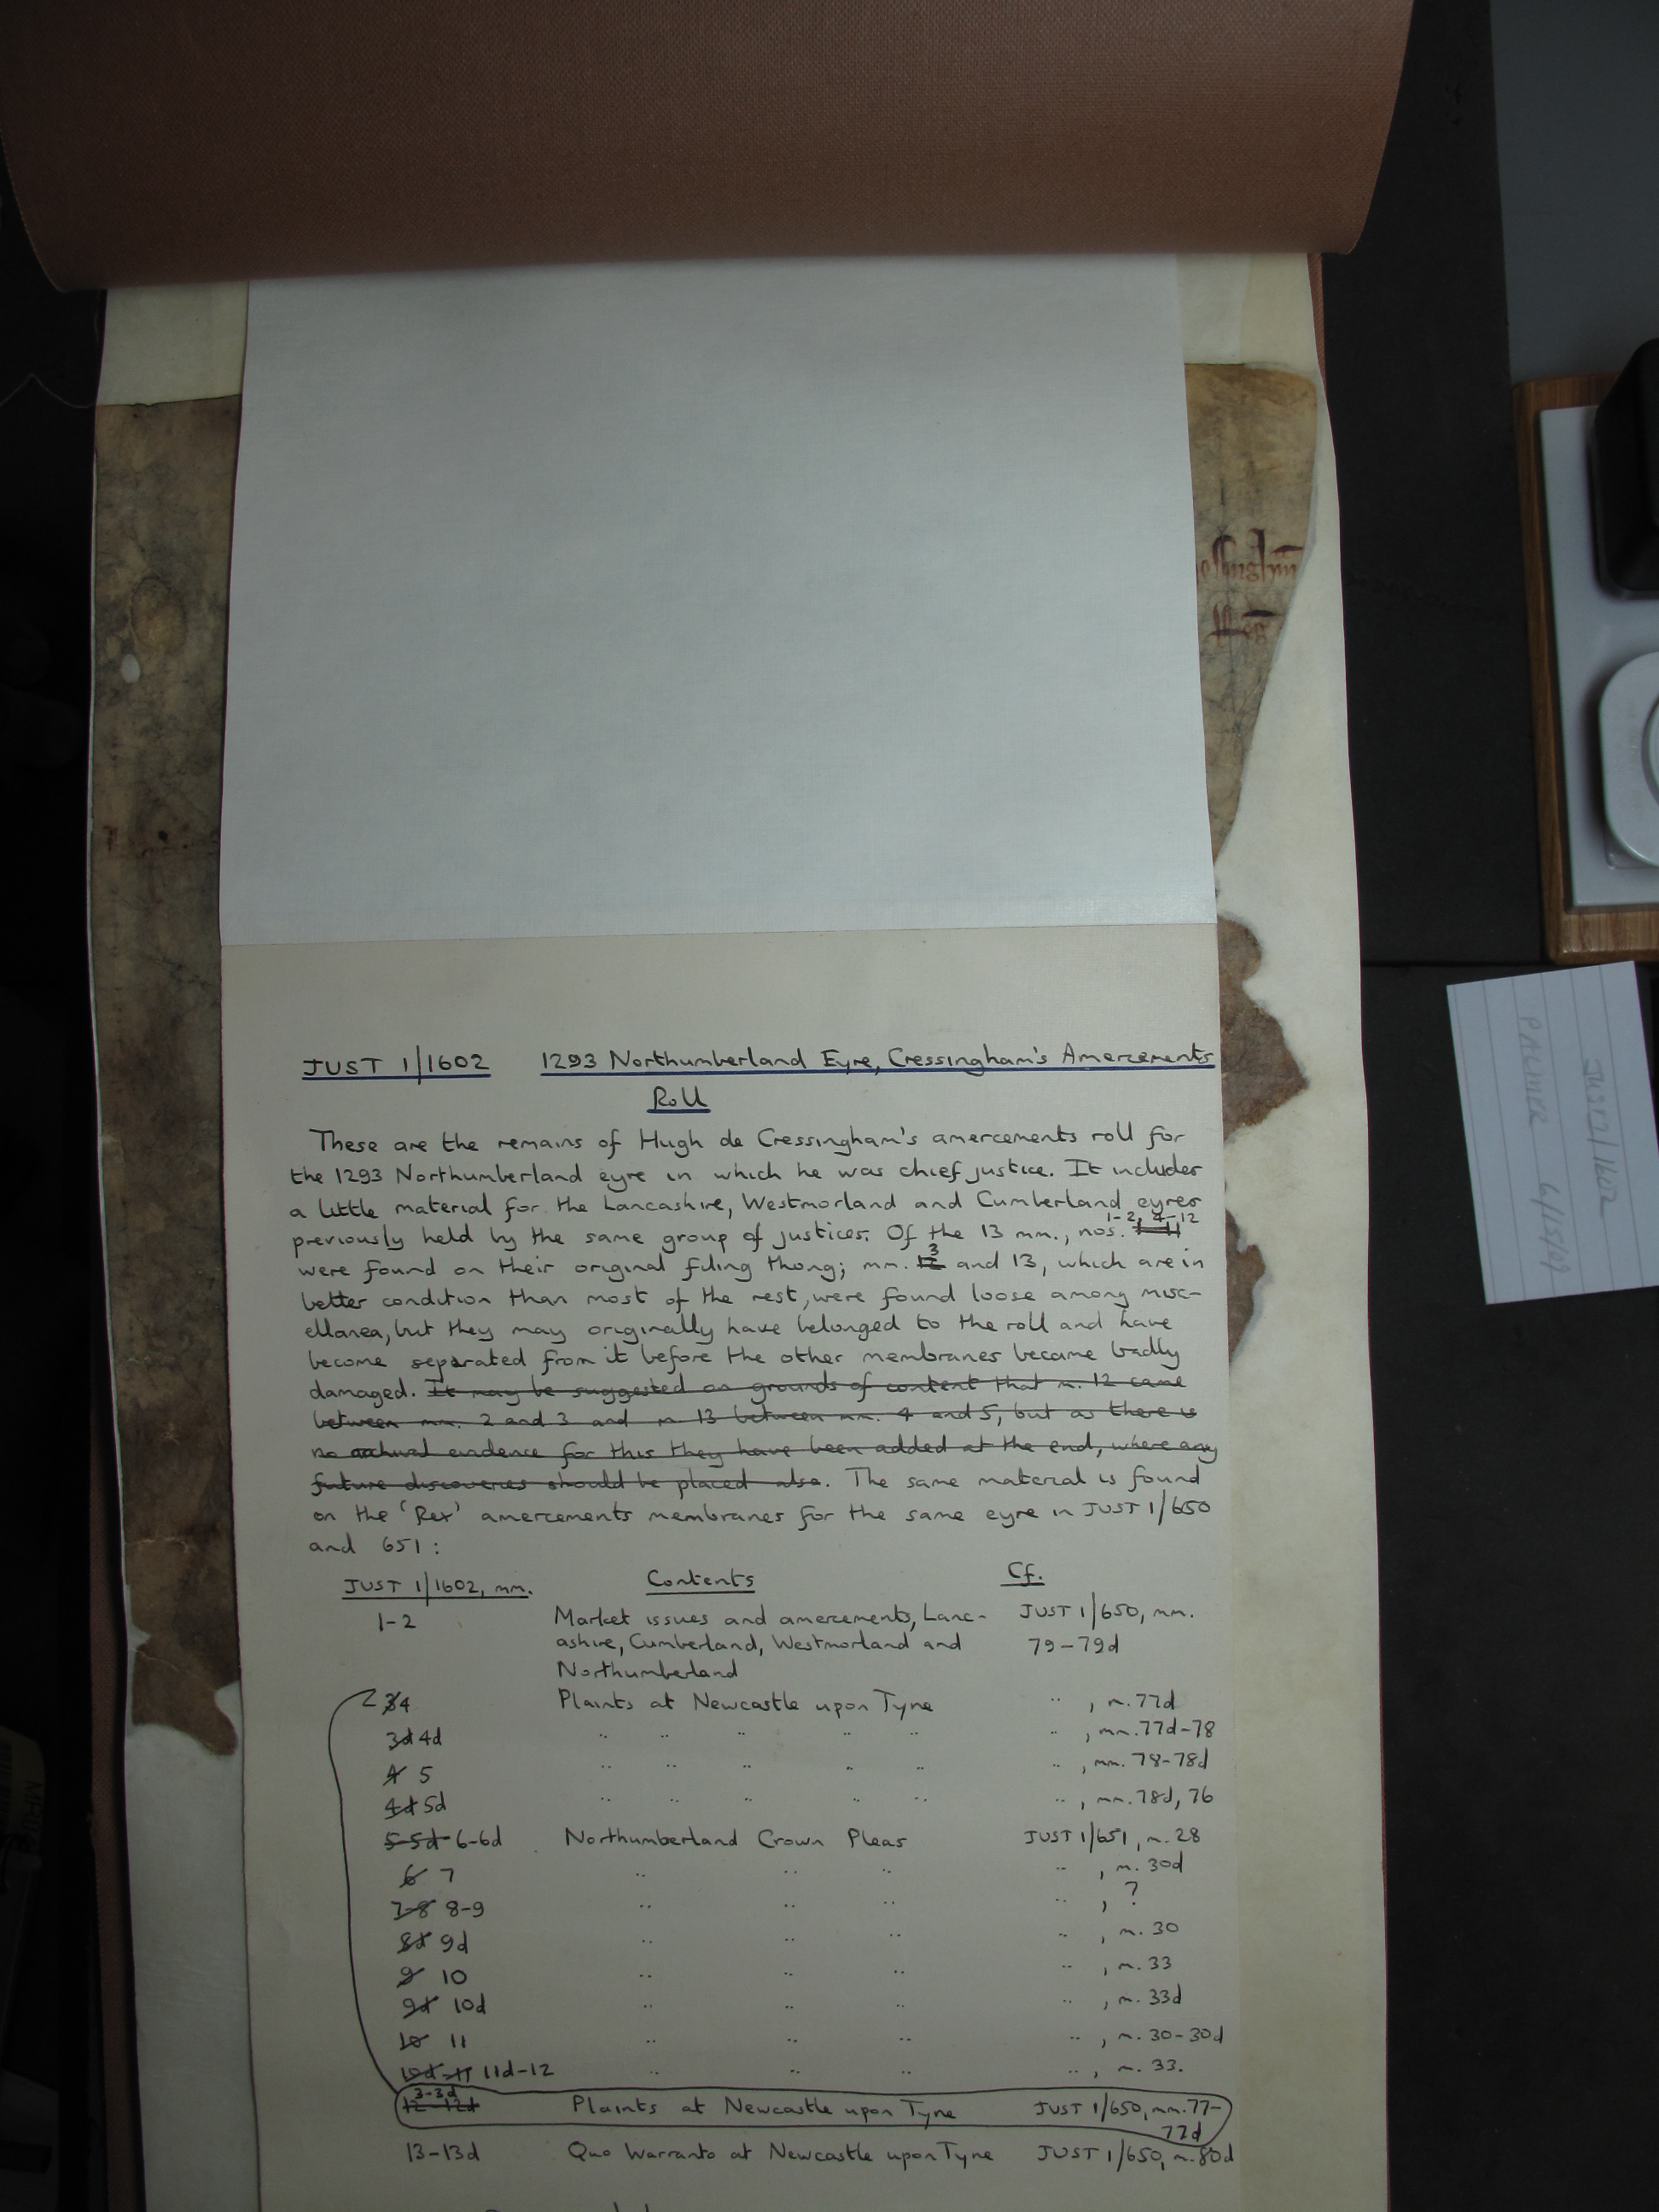 JUST 1/1602 1293 Northumberland Eyre, Cressingham's Amercements
Roll
These are the remains of Hugh de Cressingham's amercements roll for
the 1293 Northumberland eyre in which he was chief justice. It includes
a little material for the Lancashire, Westmorland and Cumberland eyres
previously held by the same group of justices. Of the 13 mm., nos. 1-2, 4-12
were found on their original filing thong; mm. 3 and 13, which are in
better condition than most of the rest, were found loose among misc-
ellanea, but they may originally have belonged to the roll and have
become separated from it before the other membranes became badly
damaged. It may be suggested on grounds of content that m. 12 came
between mm. 2 and 3 and m. 13 between mm. 4 and 5, but as there is
no actual evidence for this they have been added at the end, where any
future discoveries should be placed also. The same material is found
on the 'Rex' amercements membranes for the same eyre in JUST 1/650
and 651:
JUST 1/1602, mm. Contents Cf.
1-2 Market issues and amercements, Lanc- JUST 1/650, mm.
ashire, Cumberland, Westmorland and 79-79d
Northumberland
3 4 Plaints at Newcastle upon Tyne " , m. 77d
3d 4d " " " " " " , mm. 77d-78
4 5 " " " " " " , mm. 78-78d
4d 5d " " " " " " , mm. 78d, 76
5-5d 6-6d Northumberland Crown Pleas JUST 1/651, m. 28
6 7 " " " " , m. 30d
7-8 8-9 " " " " , ?
8d 9d " " " " , m. 30
9 10 " " " " , m. 33
9d 10d " " " " , m. 33d
10 11 " " " " , m. 30-30d
10d-11 11d-12 " " " " , m. 33.
3-3d
12-12d Plaints at Newcastle upon Tyne JUST 1/650, mm. 77-
77d
13-13d Quo Warranto at Newcastle upon Tyne JUST 1/650, m. 80d
JUST 1/1602
PALMER 6/15/09